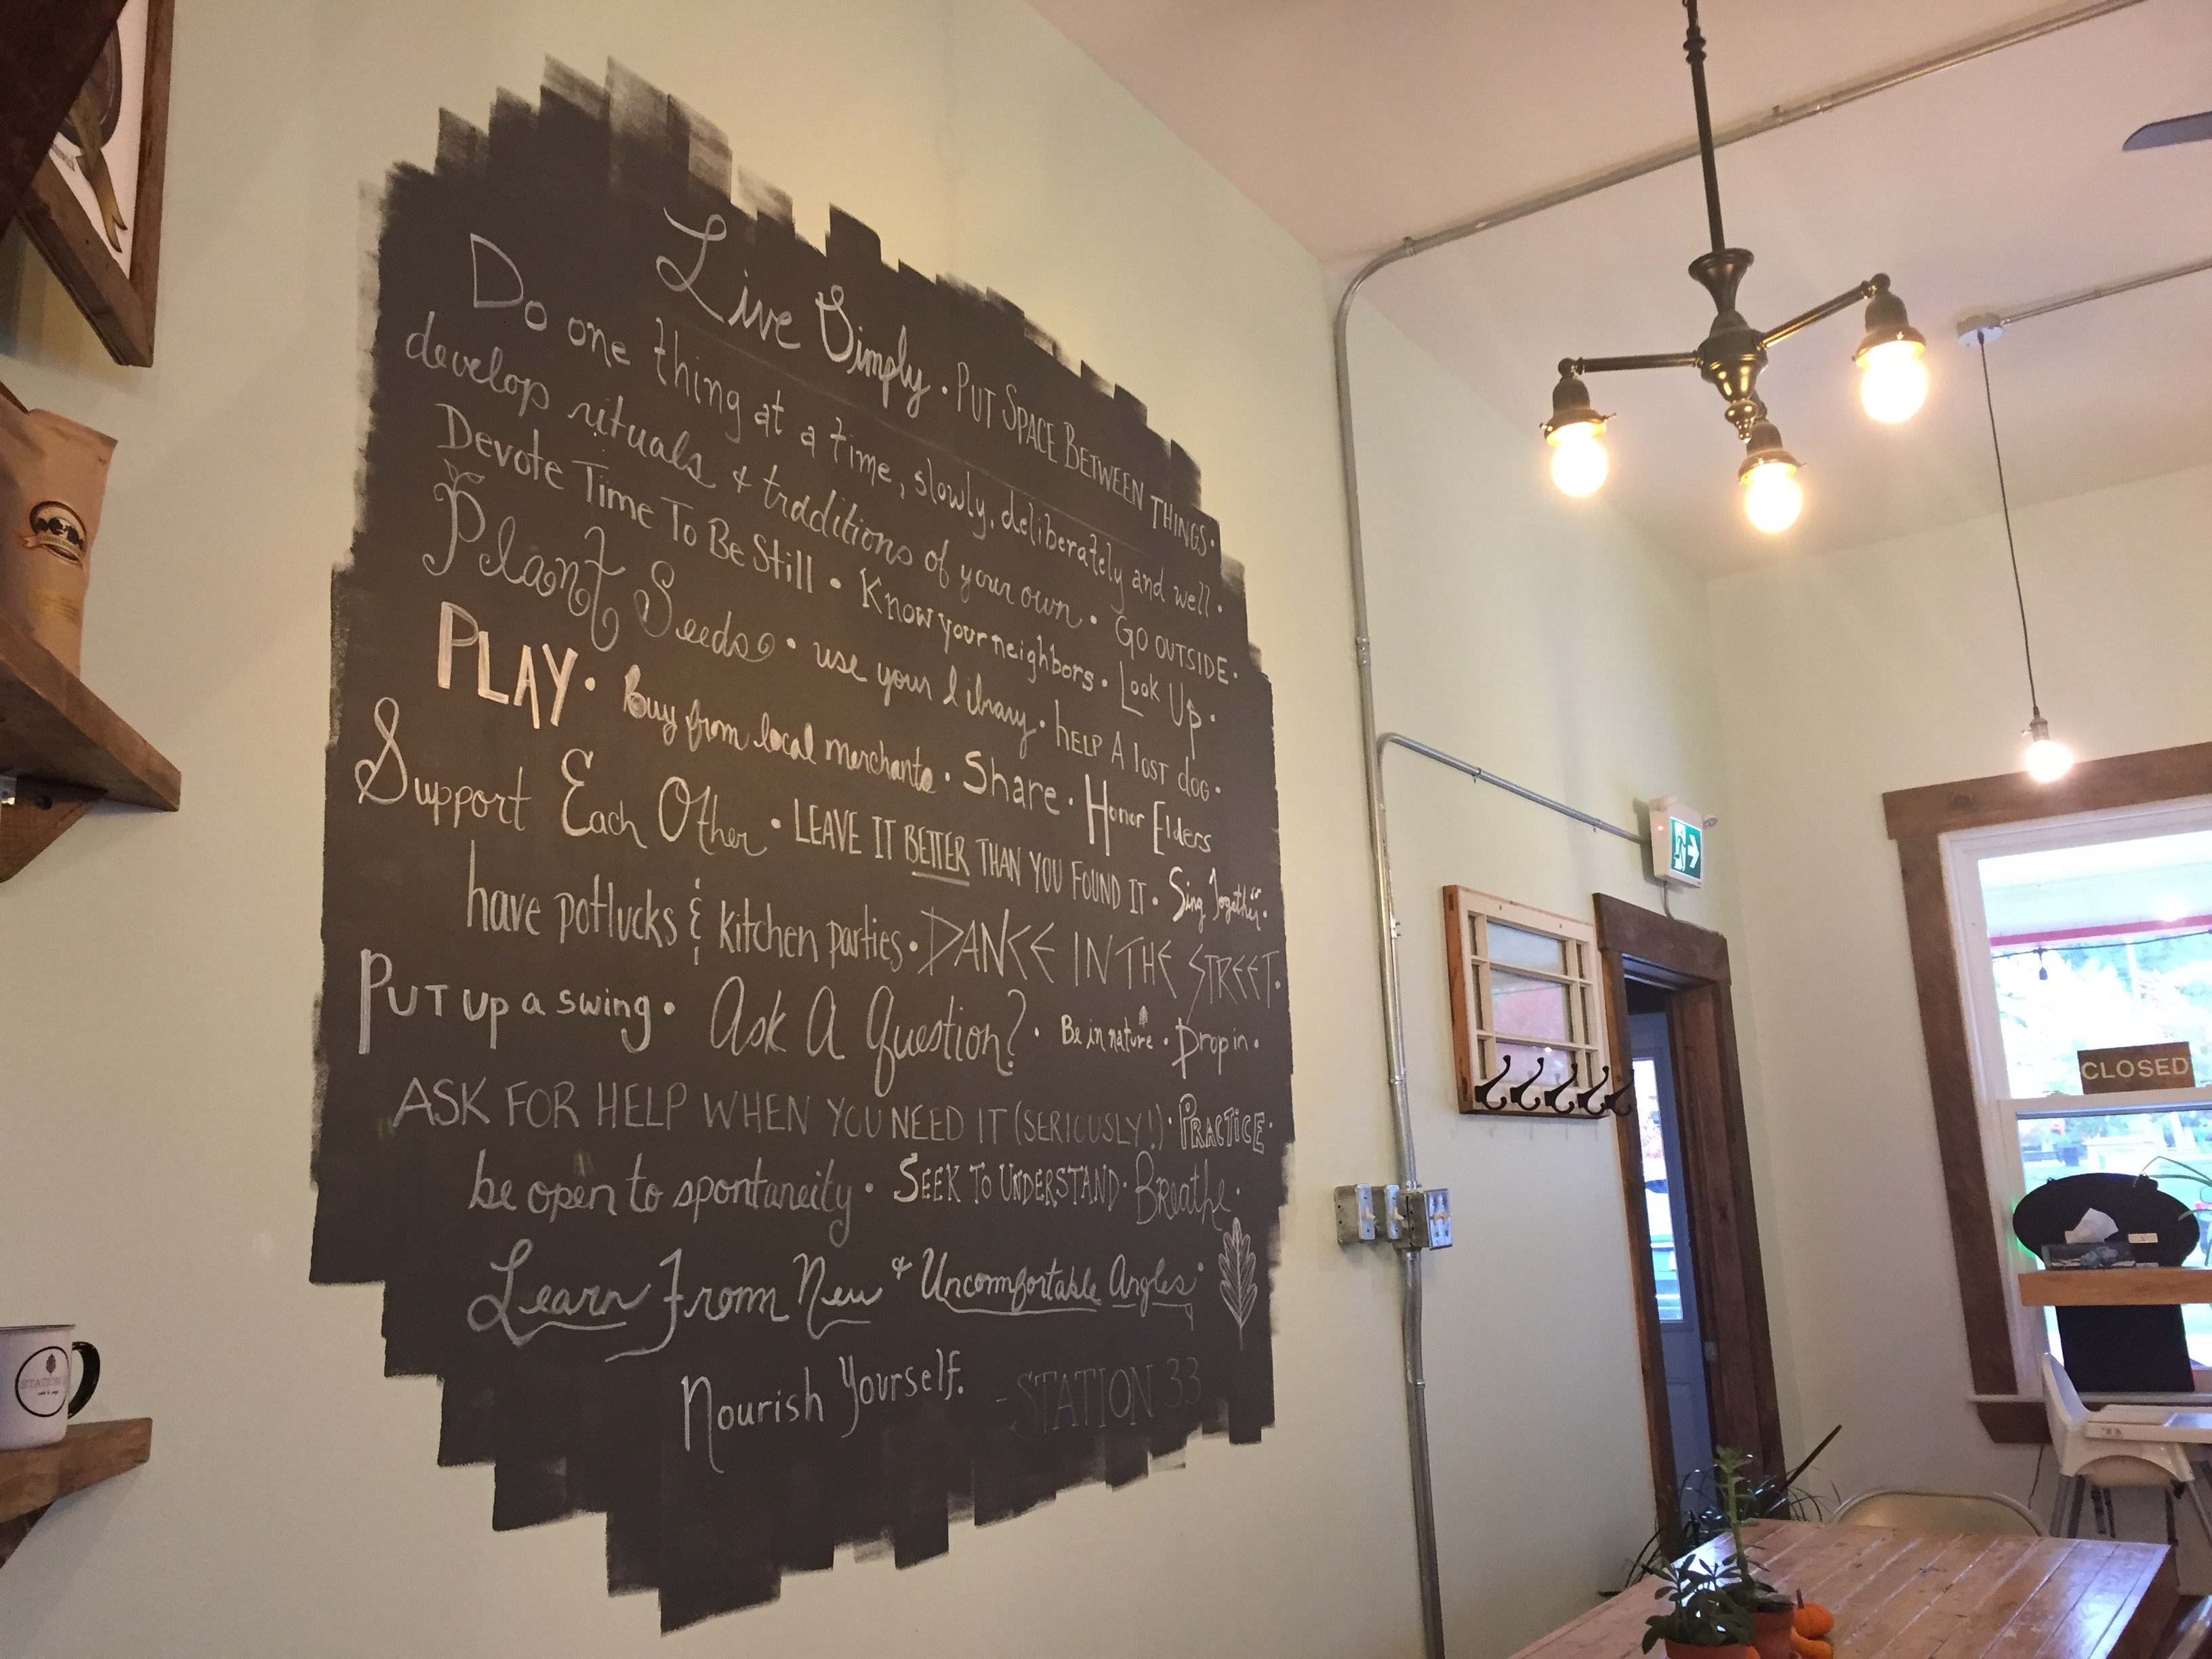 Live Simply • PUT SPACE BETWEEN THINGS •
Do one thing at a time, slowly, deliberately and well •
develop rituals & traditions of your own • GO OUTSIDE •
Devote Time To Be Still • Know your neighbors • Look Up •
Plant Seeds • use your library • HELP A lost dog •
PLAY • Buy from local merchants • Share • Honor Elders
Support Each Other • LEAVE IT BETTER THAN YOU FOUND IT • Sing Together •
have potlucks & kitchen parties • DANCE IN THE STREET •
PUT up a swing • Ask A Question? • Be in nature • Drop in •
ASK FOR HELP WHEN YOU NEED IT (SERIOUSLY!) • PRACTICE •
be open to spontaneity • SEEK TO UNDERSTAND • Breathe •
Learn From New & Uncomfortable Angles •
Nourish Yourself. - STATION 33
CLOSED
STATION